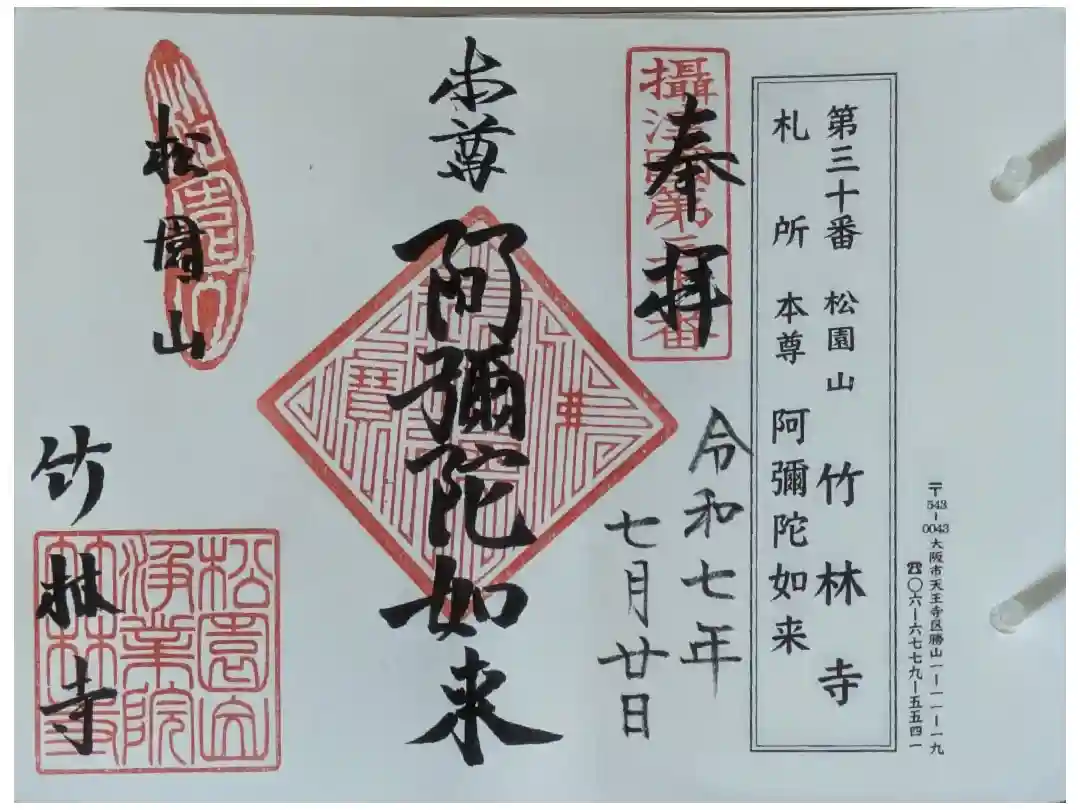 〒543-0043 大阪市天王寺区勝山一ー一一ー一九
☎〇六ー六七七九ー五五四一
第三十番 松園山 竹林寺
札所 本尊 阿彌陀如来
攝津國第三十番
奉拝
令和七年
七月廿日
本尊 阿彌陀如来
松園山
竹林寺
松園山
淨業院
竹林寺